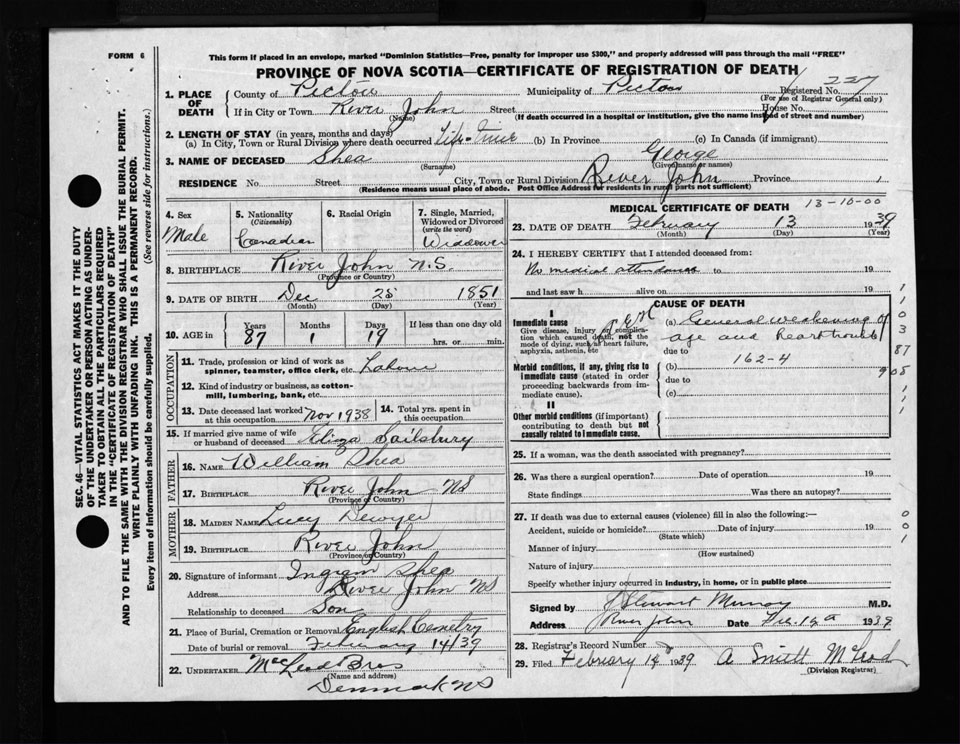 FORM 6
This form if placed in an envelope, marked "Dominion Statistics—Free, penalty for improper use $300," and properly addressed will pass through the mail "FREE"
PROVINCE OF NOVA SCOTIA—CERTIFICATE OF REGISTRATION OF DEATH
1. PLACE OF DEATH County of Pictou Municipality of Pictou Registered No. 227
(For use of Registrar General only)
If in City or Town River John Street House No.
(Name) (If death occurred in a hospital or institution, give the name instead of street and number)
2. LENGTH OF STAY (in years, months and days)
(a) In City, Town or Rural Division where death occurred Life-Time (b) In Province (c) In Canada (if immigrant)
3. NAME OF DECEASED Shea George
(Surname) (Given name or names)
RESIDENCE No. Street City, Town or Rural Division River John Province
(Residence means usual place of abode. Post Office Address for residents in rural parts not sufficient)
SEC. 46—VITAL STATISTICS ACT MAKES IT THE DUTY
OF THE UNDERTAKER OR PERSON ACTING AS UNDER-
TAKER TO OBTAIN ALL THE PARTICULARS REQUIRED
IN THE "CERTIFICATE OF REGISTRATION OF DEATH"
AND TO FILE THE SAME WITH THE DIVISION REGISTRAR WHO SHALL ISSUE THE BURIAL PERMIT.
WRITE PLAINLY WITH UNFADING INK. THIS IS A PERMANENT RECORD.
Every item of information should be carefully supplied. (See reverse side for instructions.)
4. Sex Male
5. Nationality (Citizenship) Canadian
6. Racial Origin
7. Single, Married, Widowed or Divorced (write the word) Widower
8. BIRTHPLACE River John N.S.
(Province or Country)
9. DATE OF BIRTH Dec 25 1851
(Month) (Day) (Year)
10. AGE in Years 87 Months 1 Days 19 If less than one day old
hrs. or min.
OCCUPATION
11. Trade, profession or kind of work as
spinner, teamster, office clerk, etc.
12. Kind of industry or business, as cotton-
mill, lumbering, bank, etc.
13. Date deceased last worked at this occupation Nov 1938 14. Total yrs. spent in this occupation
15. If married give name of wife or husband of deceased Eliza Sailsbury
FATHER
16. NAME William Shea
17. BIRTHPLACE River John NS
(Province or Country)
MOTHER
18. MAIDEN NAME Lucy Dewyer
19. BIRTHPLACE River John
(Province or Country)
20. Signature of informant Ingram Shea
Address River John NS
Relationship to deceased Son
21. Place of Burial, Cremation or Removal English Cemetry
Date of burial or removal February 14/39
22. UNDERTAKER McLeod Bros
(Name and address)
Denmark NS
MEDICAL CERTIFICATE OF DEATH 13-10-00
23. DATE OF DEATH February 13 1939
(Month) (Day) (Year)
24. I HEREBY CERTIFY that I attended deceased from:
No medical attendance to 19
and last saw h alive on 19
CAUSE OF DEATH
I
Immediate cause
Give disease, injury or complica-
tion which caused death, not the
mode of dying, such as heart failure,
asphyxia, asthenia, etc
(a) General weakening of
age and heart trouble
due to
162-4
Morbid conditions, if any, giving rise to
immediate cause (stated in order
proceeding backwards from im-
mediate cause).
(b)
due to
(c)
II
Other morbid conditions (if important)
contributing to death but not
causally related to immediate cause.
25. If a woman, was the death associated with pregnancy?
26. Was there a surgical operation? Date of operation 19
State findings Was there an autopsy?
27. If death was due to external causes (violence) fill in also the following:—
Accident, suicide or homicide? Date of injury 19
(State which)
Manner of injury
(How sustained)
Nature of injury
Specify whether injury occurred in industry, in home, or in public place
Signed by J Stewart Murray M.D.
Address River John Date 1939
28. Registrar's Record Number
29. Filed February 1939 A Smith McLeod
(Division Registrar)